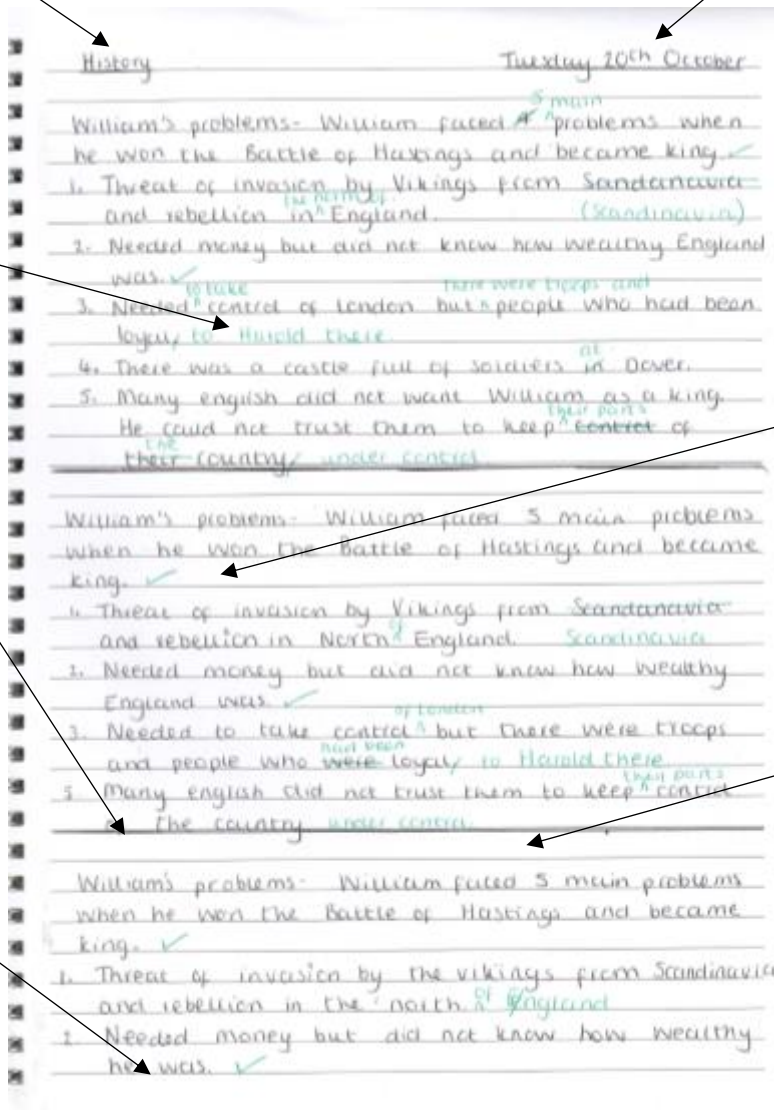 History Tuesday 20th October
5 main
William's problems- William faced 4 ^ problems when
he won the Battle of Hastings and became king. ✓
1. Threat of invasion by Vikings from Sandanavia
the north of
and rebellion in ^ England. (Scandinavia)
2. Needed money but did not know how wealthy England
was. ✓
to take there were troops and
3. Needed ^ control of London but ^ people who had been
loyal/ to Harold there.
at
4. There was a castle full of soldiers in Dover.
5. Many english did not want William as a king.
their parts
He could not trust them to keep ^ control of
the
their country/ under control
William's problems- William faced 5 main problems
when he won the Battle of Hastings and became
king. ✓
1. Threat of invasion by Vikings from Scandanavia
of
and rebellion in North ^ England. Scandinavia
2. Needed money but did not know how wealthy
England was. ✓
of London
3. Needed to take control ^ but there were troops
had been
and people who were loyal/ to Harold there.
their parts
5 Many english did not trust them to keep ^ control
the country under control.
William's problems- William faced 5 main problems
when he won the Battle of Hastings and became
king. ✓
1. Threat of invasion by the vikings from Scandinavia
of
and rebellion in the north ^ England
2. Needed money but did not know how wealthy
he was. ✓